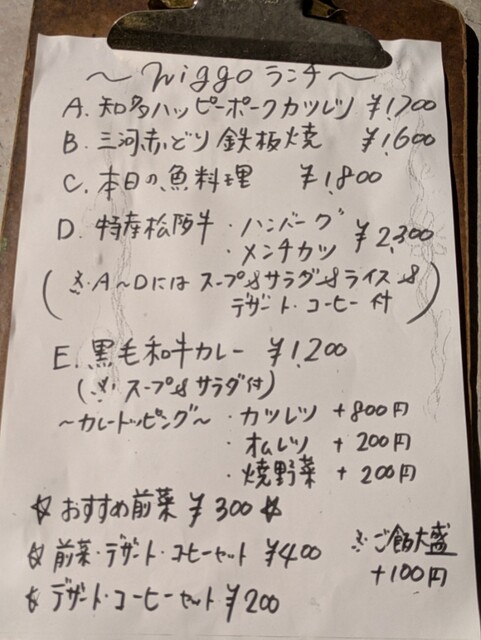 ～ niggo ランチ ～
A. 知多ハッピーポークカツレツ ¥1,700
B. 三河赤どり 鉄板焼 ¥1,600
C. 本日の魚料理 ¥1,800
D. 特産松阪牛 ・ハンバーグ ¥2,300
・メンチカツ
(※・A～Dには スープ&サラダ&ライス&
デザート・コーヒー付)
E. 黒毛和牛カレー ¥1,200
(※ スープ&サラダ付)
～カレートッピング～ ・カツレツ +800円
・オムレツ +200円
・焼野菜 +200円
☆おすすめ前菜 ¥300☆
☆ 前菜・デザート・コーヒーセット ¥400
☆ デザート・コーヒーセット ¥200
※ご飯大盛
+100円